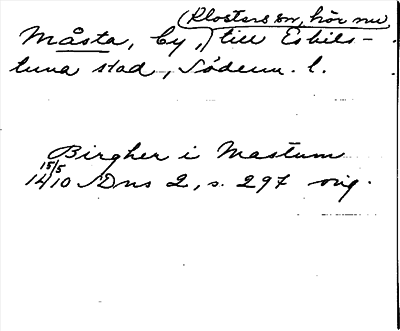 (Klosters sn, hör nu
Måsta, by,) till Eskils-
tuna stad, Söderm. l.
Birgher i Mastum
15/5
1410 SDns 2, s. 297 orig.